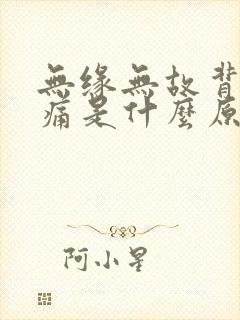 無緣無故背
痛是什麼原
阿小星